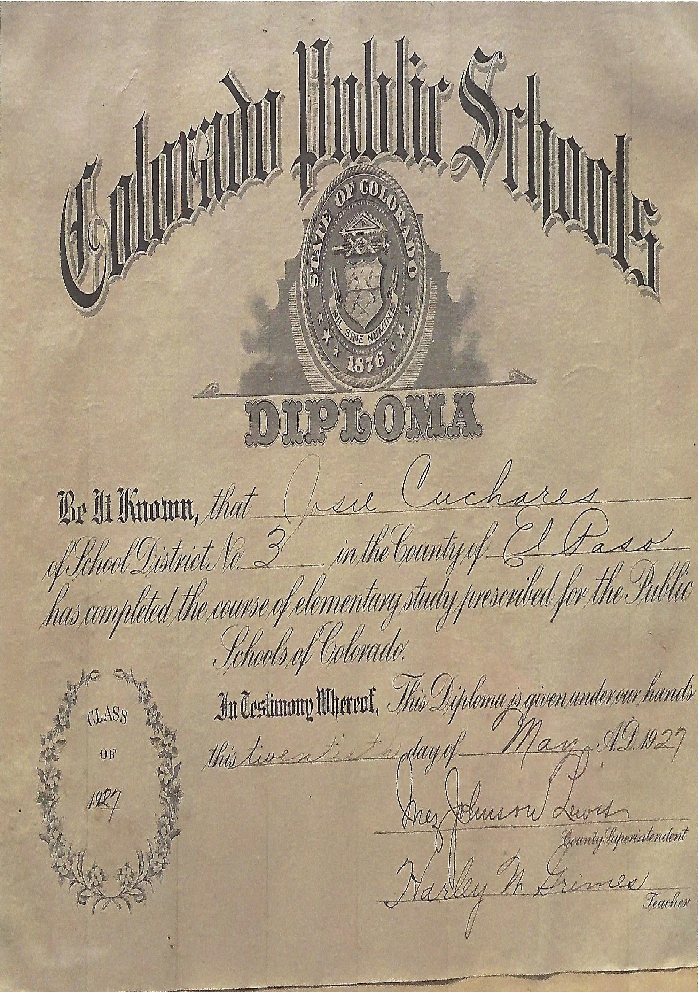 Colorado Public Schools
STATE OF COLORADO
NIL SINE NUMINE
1876
DIPLOMA
Be It Known, that Josie Cuchares
of School District No 3 in the County of El Paso
has completed the course of elementary study prescribed for the Public
Schools of Colorado.
In Testimony Whereof, This Diploma is given under our hands
this twentieth day of May A.D. 1927
CLASS
OF
1927
Inez Johnson Lewis
County Superintendent
Harley W. Grimes
Teacher